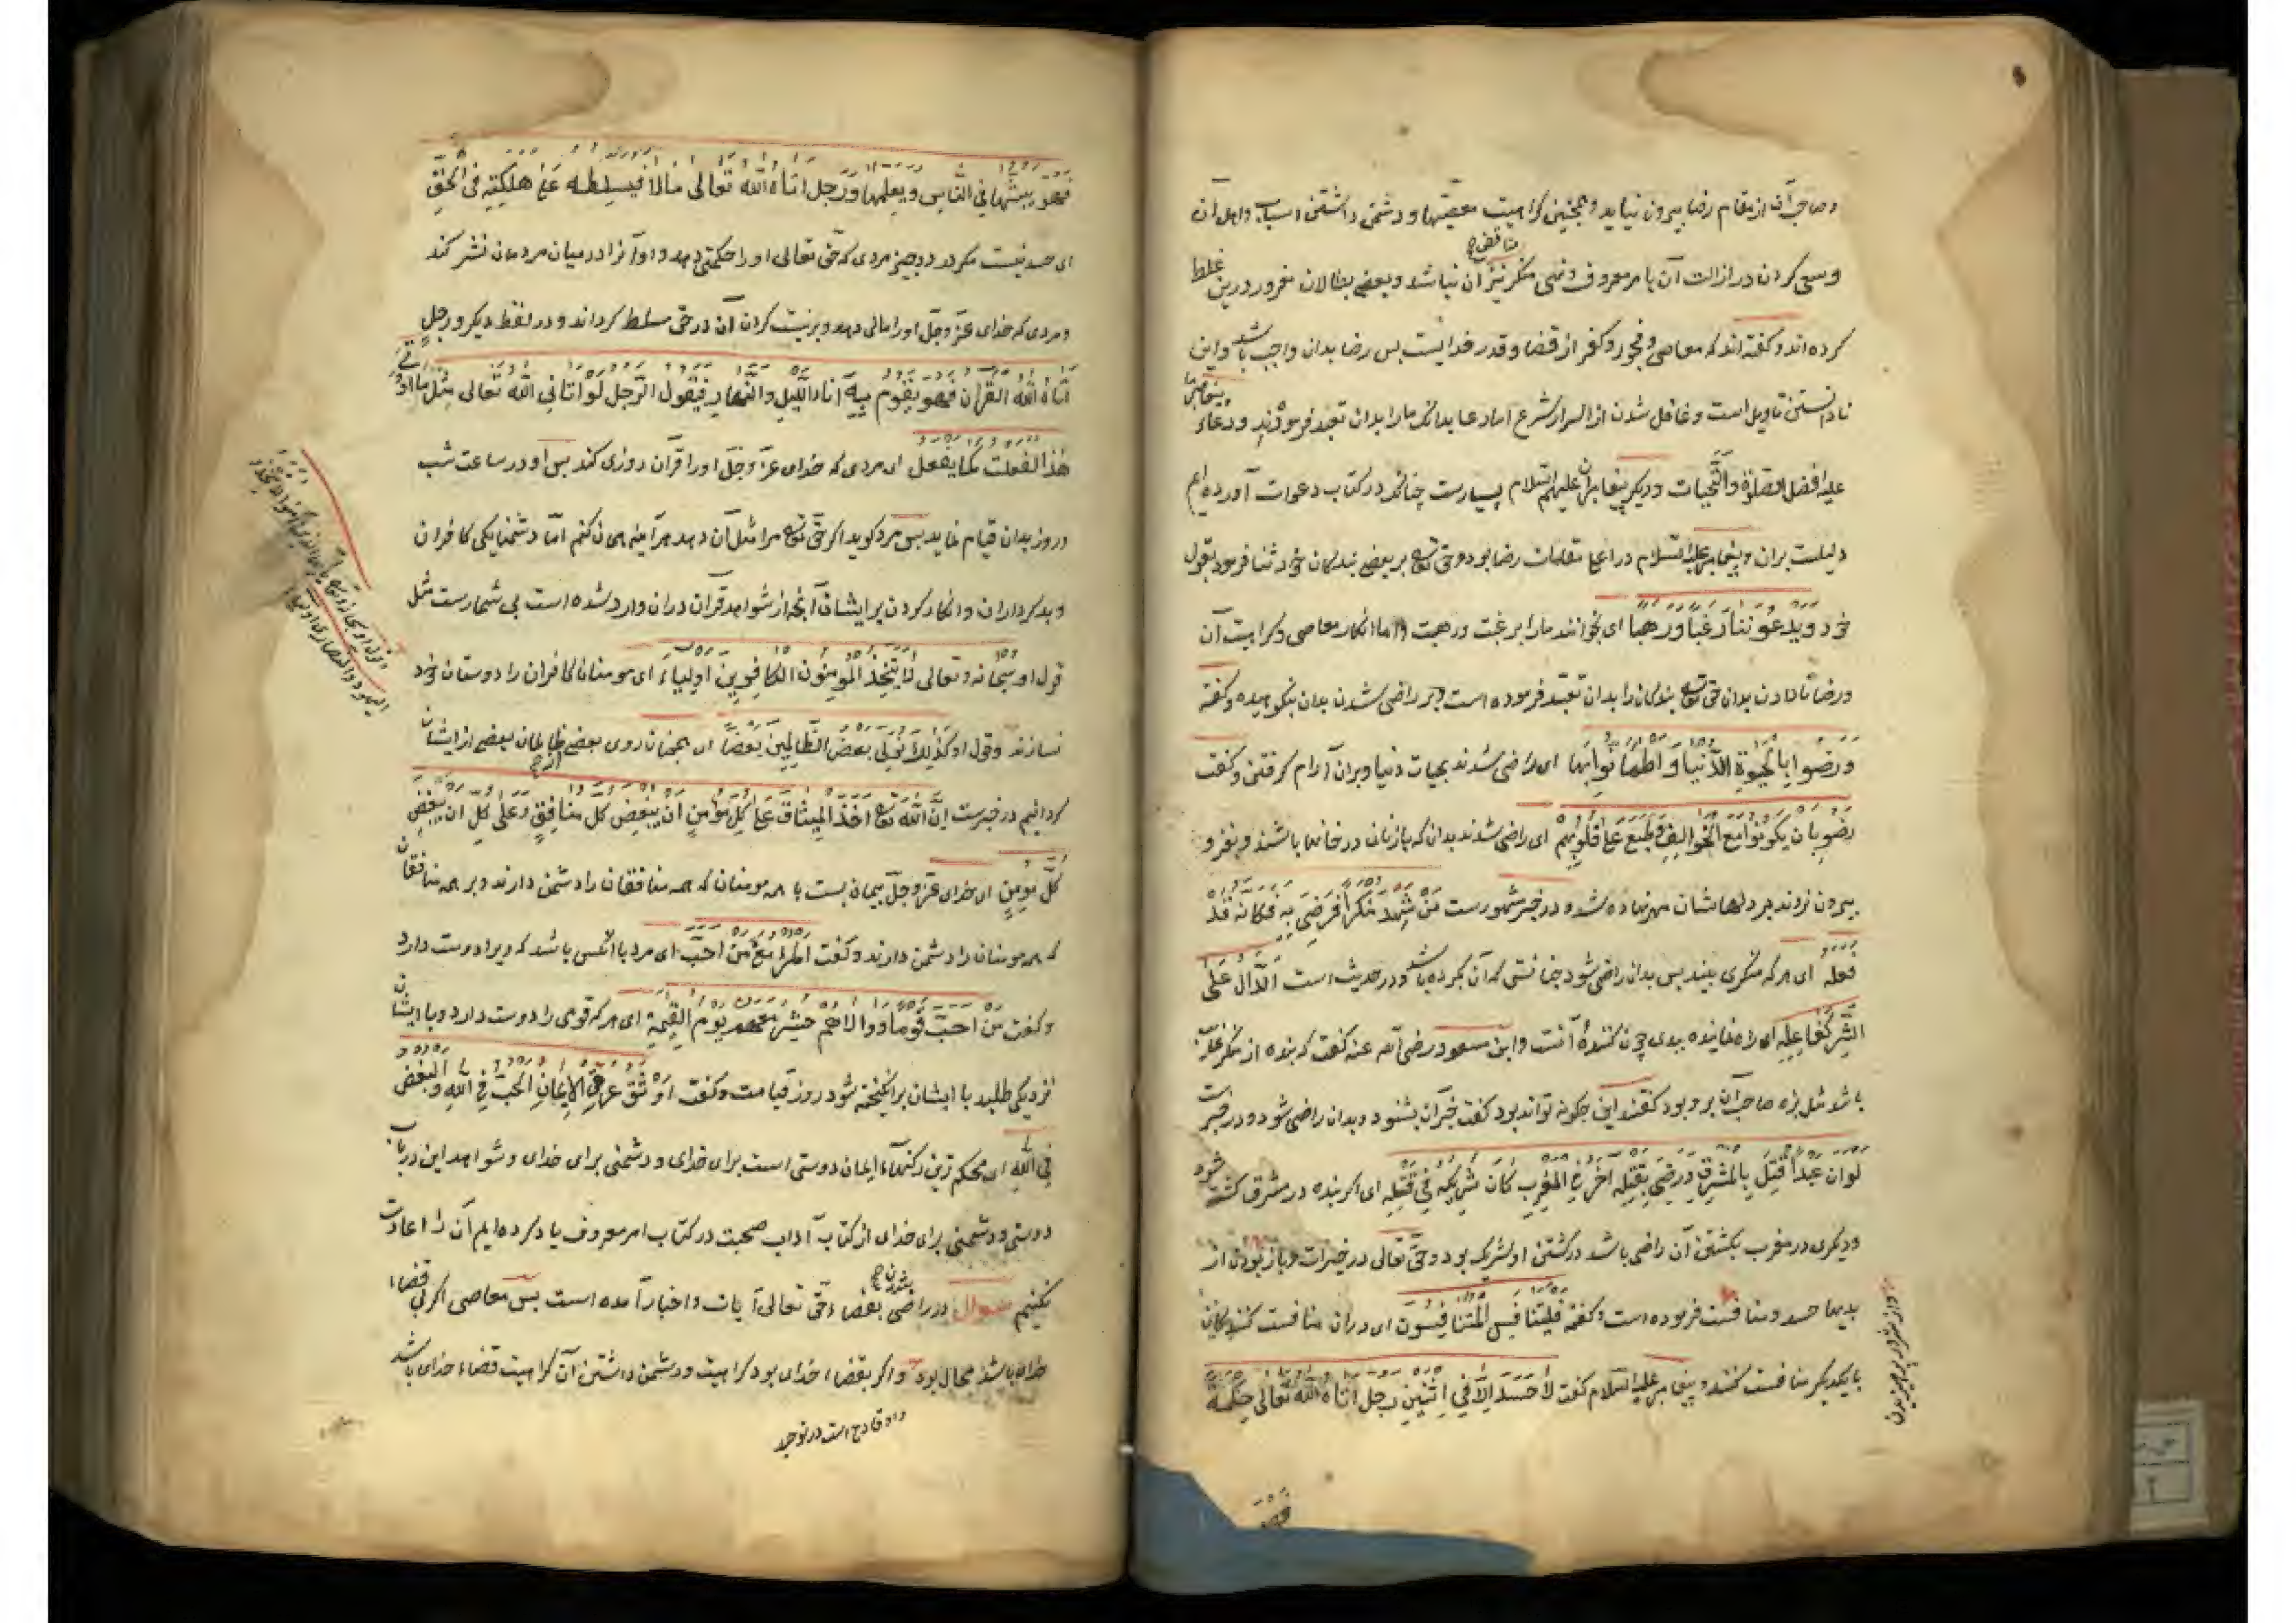 و صاحب آن از مقام رضا بیرون نیاید و همچنین کراهیت معصیتها و دشمن داشتن اسباب و اهل آن
و سعی کردن در ازالت آن بامر معروف و نهی منکر نیز مناقض آن نباشد و بعضی بطالان مغرور درین غلط
کرده اند و گفته اند که معاصی و فجور و کفر از قضا و قدر خدایست پس رضا بدان واجب باشد و این
نادانستن تاویل است و غافل شدن از اسرار شرع اما دعا بدانکه ما را بدان تعبد فرمودند و دعاء پیغامبر ما
علیه افضل الصلوة والتحیات و دیگر پیغامبران علیهم السلام بسیارست چنانکه در کتاب دعوات آورده ایم
دلیلست بران و پیغامبر علیه السلام در اعلا مقامات رضا بود و حق تع بر بعضی بندگان خود ثنا فرمود بقول
خود ویدعوننا رغبا ورهبا ای بخوانند ما را برغبت و رهبت و اما انکار معاصی و کراهیت آن
و رضا نادادن بدان حق تع بندگان را بدان تعبد فرموده است و بر راضی شدن بدان بنکوهیده و گفته
ورضوا بالحیوة الدنیا واطمانوا بها ای راضی شدند بحیات دنیا و بران آرام گرفتن و گفت
رضوا بان یکونوا مع الخوالف وطبع علی قلوبهم ای راضی شدند بدان که با زنان در خانها باشند و بغزو
بیرون نروند بر دلهاشان مهر نهاده شد و در خبر مشهورست من شهد منکرا فرضی به فکانه قد
فعله ای هر که منکری بیند پس بدان راضی شود چنانستی که آن کرده باشد و در حدیث است الدال علی
الشر کفاعله ای راه نماینده ببدی چون کننده آنست و ابن مسعود رضی الله عنه گفت که بنده از منکر غایب
باشد مثل بزه صاحب آن برو بود گفتند این چگونه تواند بود گفت خبر آن بشنود و بدان راضی شود و در خبرست
لو ان عبدا قتل بالمشرق ورضی بقتله اخر فی المغرب کان شریکه فی قتله ای اگر بنده در مشرق کشته شود
و دیگری در مغرب بکشتن آن راضی باشد در کشتن او شریک بود و حق تعالی در خیرات و باز بودن از
بدیها حسد و منافست فرموده است و گفته فلیتنافس المتنافسون ای دران منافست کنند
با یکدیگر منافست کنند و پیغامبر علیه السلام گفت لا حسد الا فی اثنین رجل اتاه الله تعالی حکمة
و از شرور پرهیزیدن
فهو
فهو یبثها فی الناس ویعلمها ورجل اتاه الله تعالی مالا فیسلطه علی هلکته فی الحق
ای حسد نیست مگر در دو چیز مردی که حق تعالی او را حکمتی دهد و او آنرا در میان مردمان نشر کند
و مردی که خدای عز و جل او را مالی دهد و بر نیست کردن آن در حق مسلط گرداند و در لفظ دیگر ورجل
اتاه الله القران فهو یقوم به اناء اللیل والنهار فیقول الرجل لو اتانی الله تعالی مثل ما اوتی
هذا لفعلت کما یفعل ای مردی که خدای عز و جل او را قرآن روزی کند پس او در ساعت شب
و روز بدان قیام نماید پس مرد گوید اگر حق تع مرا مثل آن دهد هر آینه همان کنم اما دشمنایگی کافران
و بدکرداران و انکار کردن بر ایشان آنچه از شواهد قرآن دران وارد شده است بی شمارست مثل
قول او سبحانه و تعالی لا یتخذ المومنون الکافرین اولیاء ای مومنان کافران را دوستان خود
نسازند وقول او کذلک نولی بعض الظالمین بعضا ای همچنان روی بعضی ظالمان بعضی از ایشان
گردانیم در خبرست ان الله تع اخذ المیثاق علی کل مومن ان یبغض کل منافق وعلی کل ان یبغض
کل مومن ای خدای عز و جل پیمان بست با همه مومنان که همه منافقان را دشمن دارند و بر همه منافقان
که همه مومنان را دشمن دارند و گفت المرء مع من احب ای مرد با آنکس باشد که ویرا دوست دارد
و گفت من احب قوما ووالاهم حشر معهم یوم القیمة ای هر که قومی را دوست دارد و با ایشان
نزدیکی طلبد با ایشان برانگیخته شود روز قیامت و گفت اوثق عری الایمان الحب فی الله والبغض
فی الله ای محکم ترین رکنهاء ایمان دوستی است برای خدای و دشمنی برای خدای و شواهد این در باب
دوستی و دشمنی برای خدای از کتاب آداب صحبت در کتاب امر معروف یاد کرده ایم آن را اعادت
نکنیم سوال در راضی شدن بقضاء حق تعالی آیات و اخبار آمده است پس معاصی اگر بی قضاء
خدای باشد محال بود و اگر بقضاء خدای بود کراهیت و دشمن داشتن آن کراهیت قضاء خدای باشد
و او قادح است در توحید
و قول او سبحانه و تع یا ایها الذین آمنوا لا تتخذوا
الیهود والنصاری اولیاء